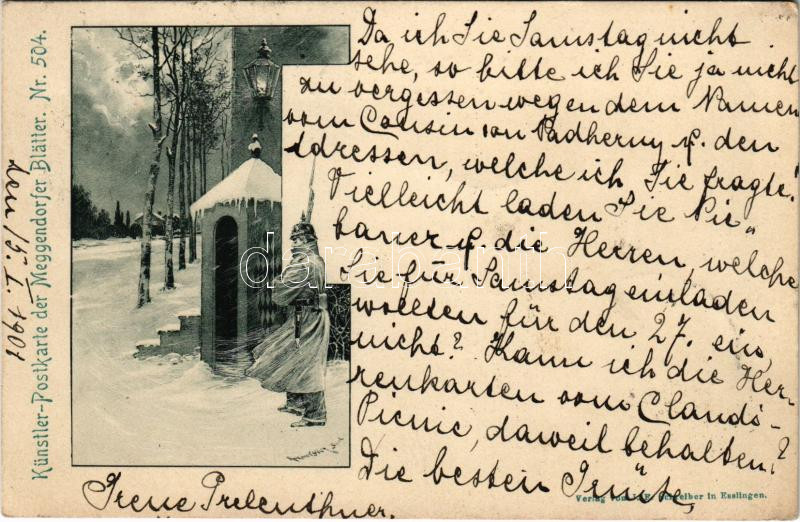 Da ich Sie Samstag nicht
sehe, so bitte ich Sie ja nicht
zu vergessen wegen dem Namen
vom Cousin von Padherny u. den
Adressen, welche ich Sie fragte!
Vielleicht laden Sie Pir„
baner u. die Herren, welche
Sie für Samstag einladen
wollten für den 27. ein,
nicht? Kann ich die Her-
renkarten vom Clands-
Picnic, daweil behalten?
Die besten Grüße,
Irene
Künstler-Postkarte der Meggendorfer Blätter. Nr. 504.
den 15. I. 1902
Verlag von J. F. Schreiber in Esslingen.
darabanth